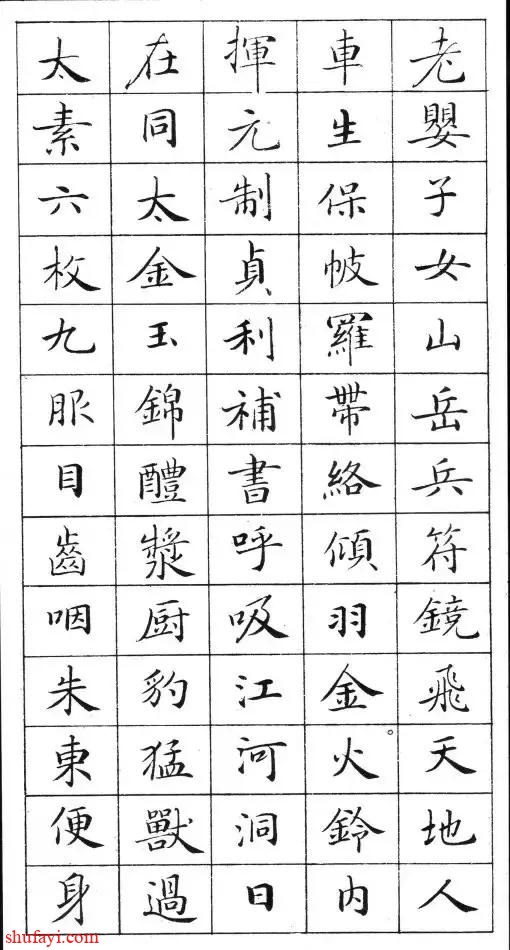 老嬰子女山岳兵符鏡飛天地人
車生保帔羅帶絡傾羽金火鈴内
揮元制貞利補書呼吸江河洞日
在同太金玉錦醴漿厨豹猛獸過
太素六枚九服目齒咽朱東便身
shufayi.com